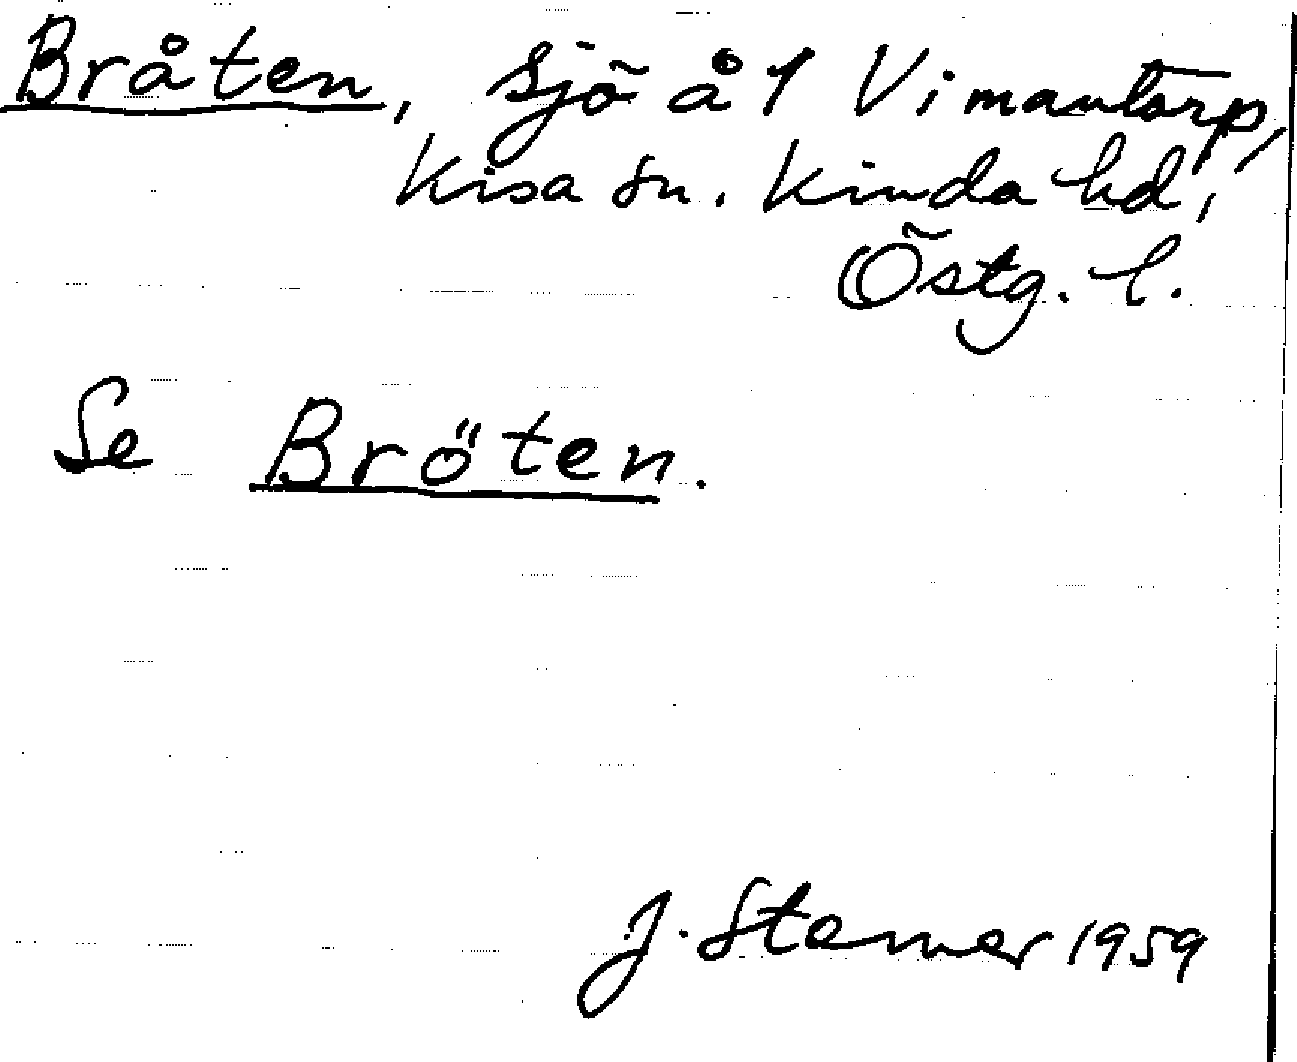 Bråten, sjö å 1 Vimantorp,
Kisa sn. Kinda hd,
Östg. l.
Se Bröten.
J. Stemer 1959